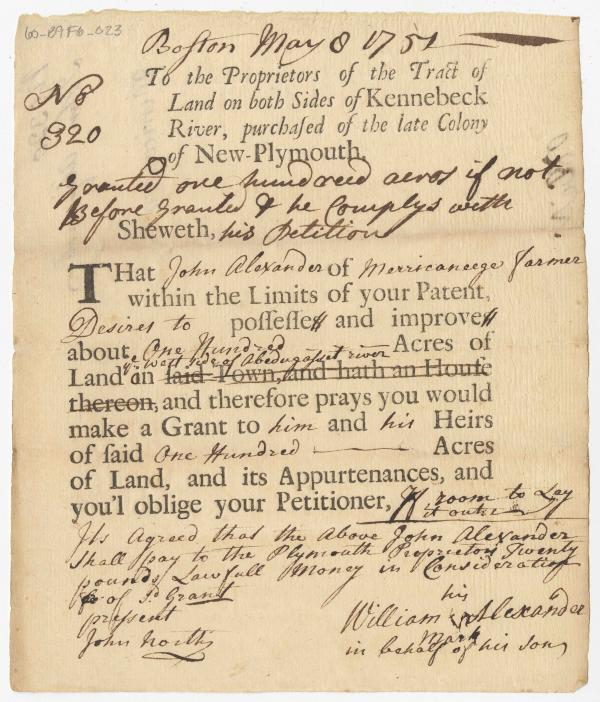 60-BA F6-023
Boston May 8 1751
No
320
To the Proprietors of the Tract of
Land on both Sides of Kennebeck
River, purchaſed of the late Colony
of New-Plymouth
Granted one hundreed acros if not
Before Granted & he Complys with
Sheweth, his Petition
THat John Alexander of Merricaneege farmer
within the Limits of your Patent,
Desires to poſſeſſes and improves
about One Hundred Acres of
ye West Side of Abedugasset river
Land in ſaid Town, and hath an Houſe
thereon, and therefore prays you would
make a Grant to him and his Heirs
of ſaid One Hundred Acres
of Land, and its Appurtenances, and
you'l oblige your Petitioner, If room to Lay
it out
Its Agreed that the Above John Alexander
Shall pay to the Plymouth Proprietors Twenty
pounds Lawfull Money in Consideration
of Sd Grant
present
John North
his
William Alexander
Mark
in behalf of his son